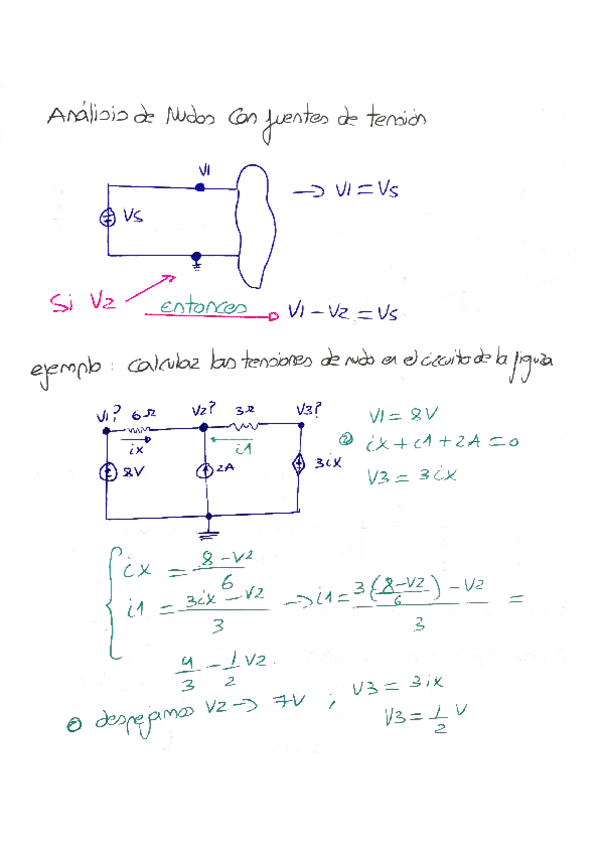 Análisis de Nudos Con fuentes de tensión
V1
→ V1 = Vs
Vs
Si V2 entonces V1 - V2 = Vs
ejemplo : Calcular las tensiones de nudo en el circuito de la figura
V1? 6Ω V2? 3Ω V3?
V1 = 8V
ix i1
② ix + i1 + 2A = 0
8V 2A 3ix
V3 = 3ix
ix = 8-V2 / 6
i1 = 3ix - V2 / 3 → i1 = 3(8-V2 / 6) - V2 / 3 =
4/3 - 1/2 V2
② despejamos V2 → 7V ; V3 = 3ix
V3 = 1/2 V